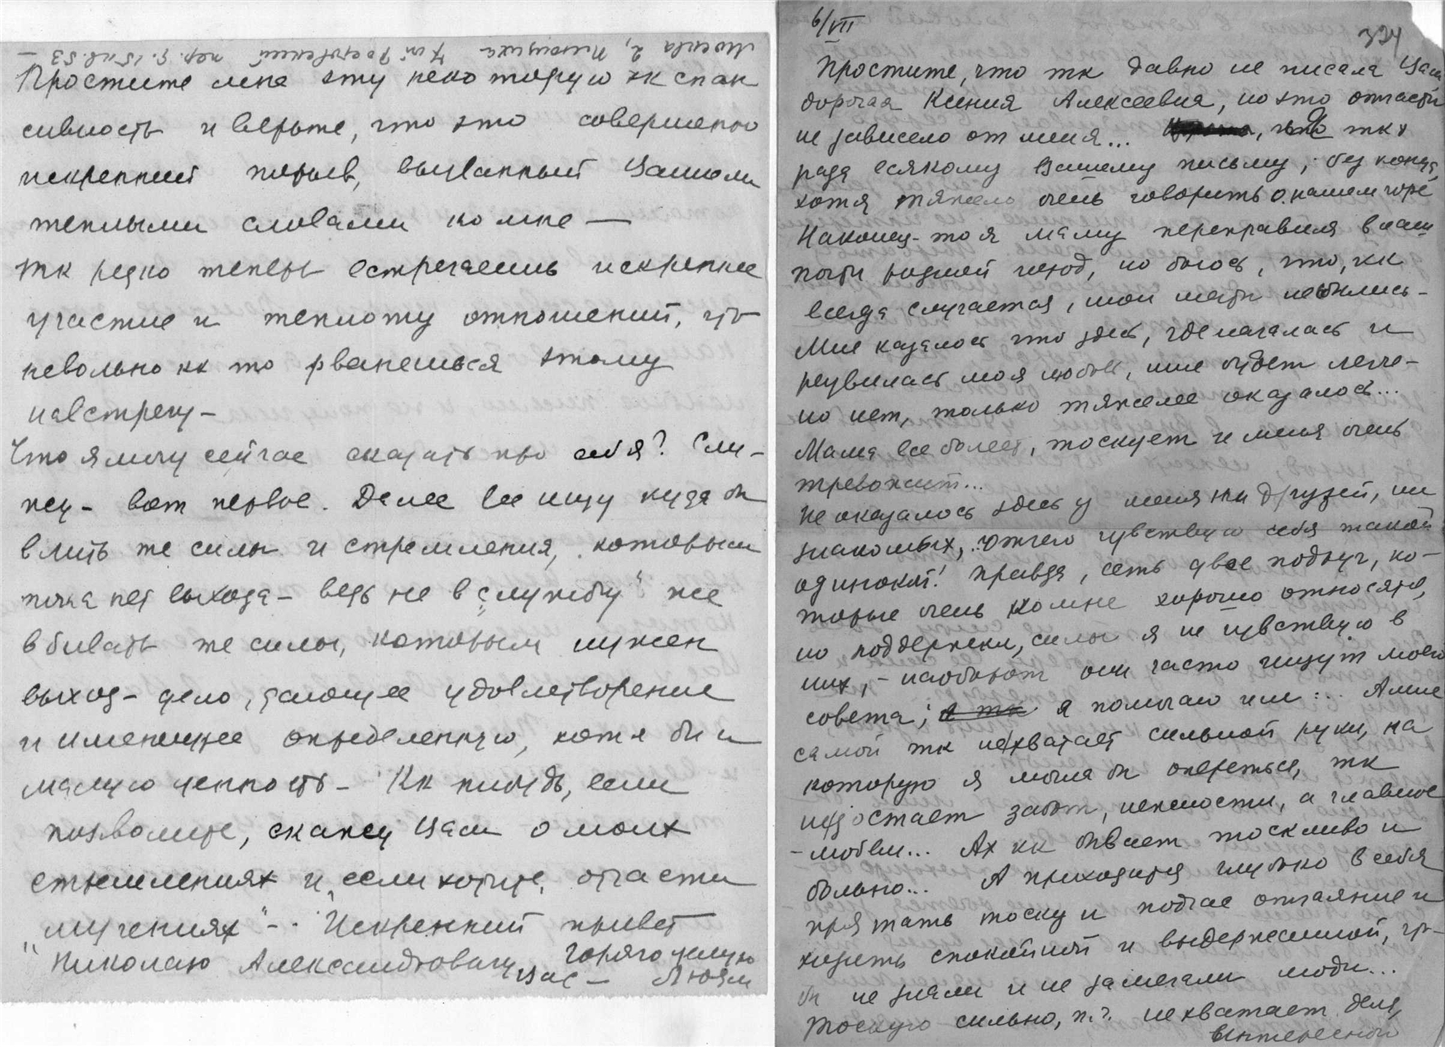 Москва 2, Плющиха 7ой Ростовский пер. д. 15 кв. 53
Простите мне эту некоторую экспан
сивность и верьте, что это совершенно
искренний порыв, вызванный Вашими
теплыми словами ко мне —
тк редко теперь встречаешь искреннее
участие и теплоту отношений, что
невольно кк то рванешься этому
навстречу —
Что я могу сейчас сказать про себя? Слу-
жу — вот первое. Далее все ищу куда бы
влить те силы и стремления, которым
пока нет выхода — ведь не в "службу" же
вбивать те силы, которым нужен
выход — дело, дающее удовлетворение
и имеющее определенную, хотя бы и
малую ценность — Кк нибудь, если
позволите, скажу Вам о моих
стремлениях и, если хотите, отчасти
"мучениях" — Искренний привет
Николаю Александровичу горячо целую
Вас — Любям
6/VII
324
Простите, что тк давно не писала Вам
дорогая Ксения Алексеевна, но это отчасти
не зависело от меня... тк
рада всякому Вашему письму, без конца,
хотя тяжело очень говорить о нашем горе
Наконец-то я маму переправила в наш
почти родной город, но боюсь, что, кк
всегда случается, мои мечты не сбылись —
Мне казалось что здесь, где началась и
развилась моя любовь, мне будет легче —
но нет, только тяжелее оказалось...
Мама все болеет, тоскует и меня очень
тревожит...
Не оказалось здесь у меня ни друзей, ни
знакомых, отчего чувствую себя такой
одинокой! Правда, есть двое подруг, ко-
торые очень ко мне хорошо относятся,
но поддержки, силы я не чувствую в
них, — наоборот они часто ищут моего
совета; я помогаю им... А мне
самой тк не хватает сильной руки, на
которую я могла бы опереться, тк
недостает забот, нежности, а главное
— любви... Ах кк бывает тоскливо и
больно... А приходится глубоко в себя
прятать тоску и подчас отчаяние и
ходить спокойной и выдержанной, что
бы не знали и не замечали люди...
Тоскую сильно, п.ч. не хватает дела,
интересной